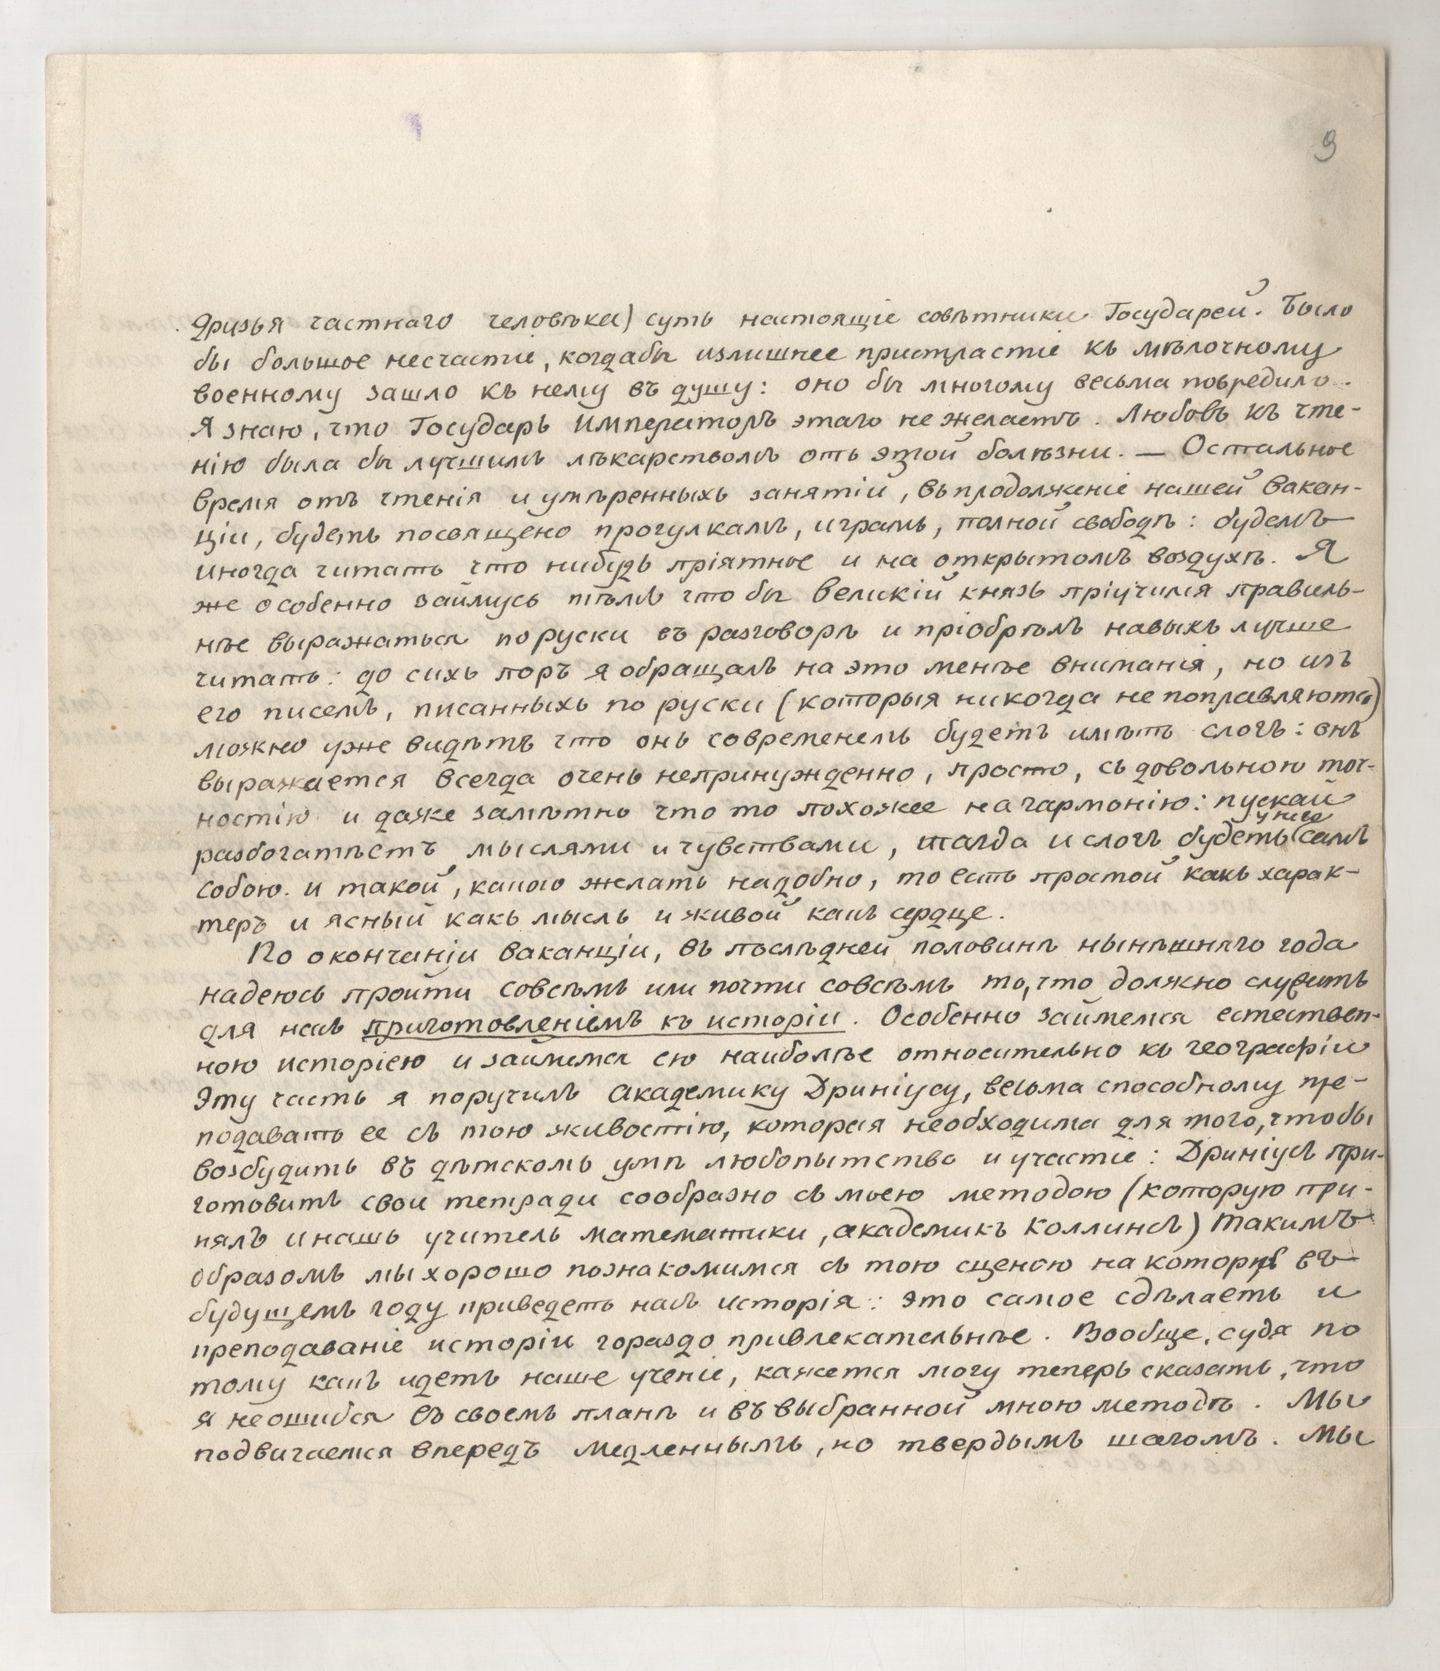 9
друзья частнаго человѣка) суть настоящіе совѣтники Государей. Было
бы большое несчастіе, когдабы излишнее пристрастіе къ мѣлочному
военному зашло къ нему въ душу: оно бы многому весьма повредило.
Я знаю, что Государь Императоръ этаго не желаетъ. Любовь къ чте-
нію была бы лучшимъ лѣкарствомъ отъ этой болѣзни. — Остальное
время отъ чтенія и умѣренныхъ занятій, въ продолженіе нашей вакан-
ціи, будетъ посвящено прогулкамъ, играмъ, полной свободѣ: будемъ
иногда читать что нибудь пріятное и на открытомъ воздухѣ. Я
же особенно займусь тѣмъ что бы великій князь пріучился правиль-
нѣе выражаться по руски въ разговорѣ и пріобрѣлъ навыкъ лучше
читать: до сихъ поръ я обращалъ на это менѣе вниманія, но изъ
его писемъ, писанныхъ по руски (которыя никогда не поправляются)
можно уже видѣть что онъ современемъ будетъ имѣть слогъ: онъ
выражается всегда очень непринужденно, просто, съ довольною точ-
ностію и даже замѣтно что то похожее на гармонію: пускай
разбогатѣетъ мыслями и чувствами, тогда и слогъ будетъ уже самъ
собою и такой, какого желать надобно, то есть простой какъ харак-
теръ и ясный какъ мысль и живой какъ сердце.
По окончаніи ваканціи, въ послѣдней половинѣ нынѣшняго года
надеюсь пройти совсѣмъ или почти совсѣмъ то, что должно служить
для насъ приготовленіемъ къ исторіи. Особенно займемся естествен-
ною исторіею и займемся ею наиболѣе относительно къ географіи
Эту часть я поручилъ Академику Дриніусу, весьма способному пре-
подавать ее съ тою живостію, которая необходима для того, чтобы
возбудить въ дѣтскомъ умѣ любопытство и участіе: Дриніусъ при-
готовитъ свои тетради сообразно съ моею методою (которую при-
нялъ и нашъ учитель математики, академикъ Коллинсъ) Такимъ
образомъ мы хорошо познакомимся съ тою сценою на которую въ
будущемъ году приведетъ насъ исторія: это самое сдѣлаетъ и
преподаваніе исторіи гораздо привлекательнѣе. Вообще, судя по
тому какъ идетъ наше ученіе, кажется могу теперь сказать, что
я не ошибся въ своемъ планѣ и въ выбранной мною методѣ. Мы
подвигаемся впередъ медленнымъ, но твердымъ шагомъ. Мы